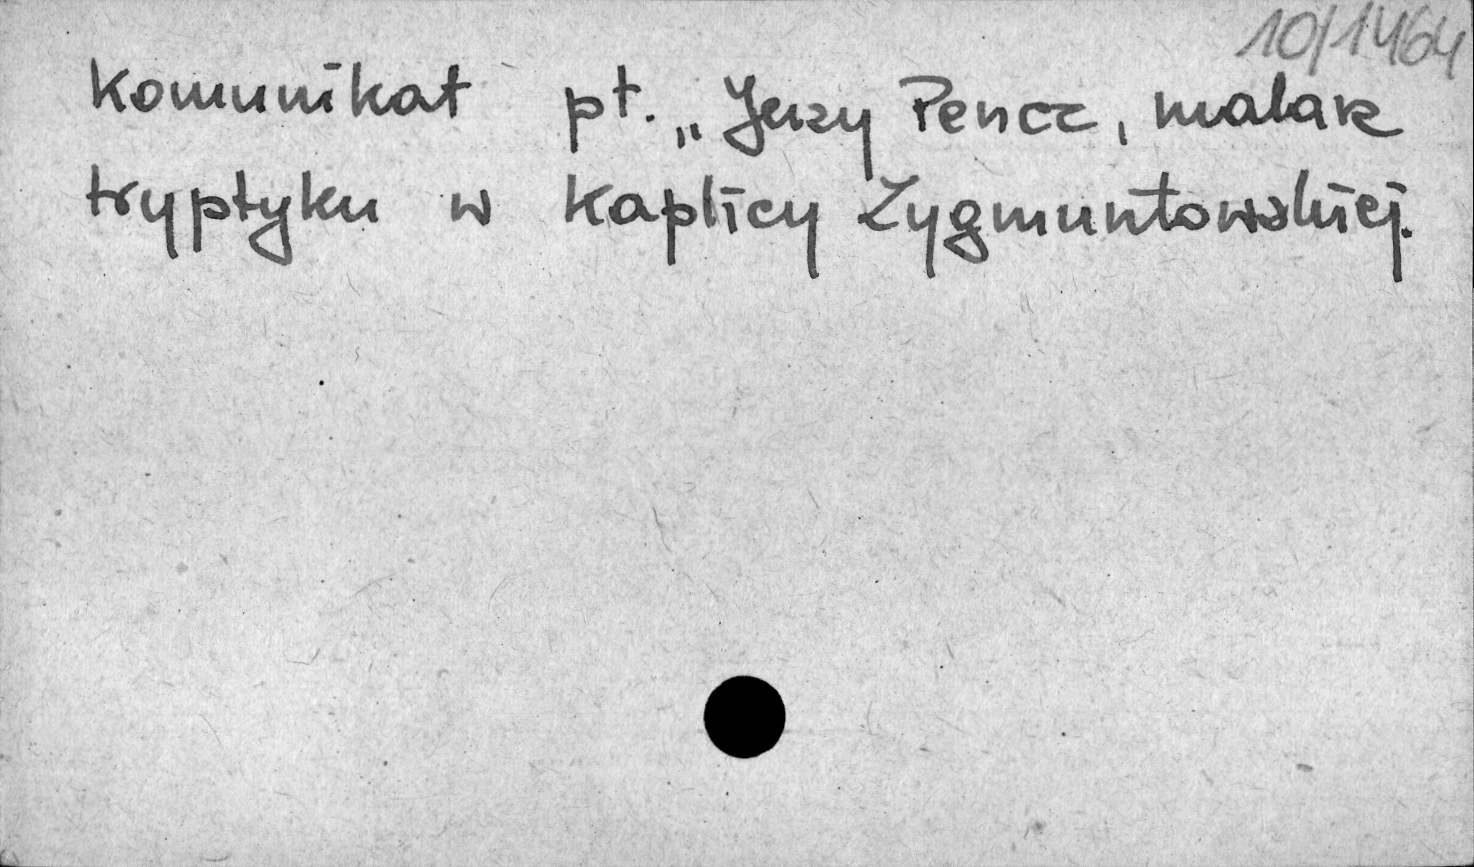 10/1464
Komunikat pt. „Jerzy Pencz, malarz
tryptyku w Kaplicy Zygmuntowskiej.